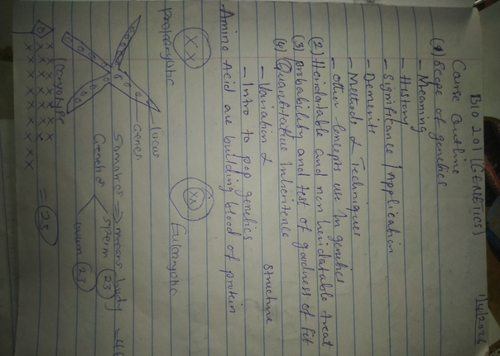 BIO 201 (GENETICS)
Course Outline
(1) Scope of genetics
- Meaning
- History
- Significance / Application
- Demerits
- Methods & Techniques
- Other Concepts use in genetics
(2) Heridatable and non heridatable treat
(3) probability and test of goodness of fit
(4) Quantitative Inheritence
- Variation &
Structure
- Intro to pop genetics
Amino Acid are building blood of protein
XX
XX
Eukaryotic
locus
Genes
Somatic => means body = 46
Genetics
sperm (23)
ovum (23)